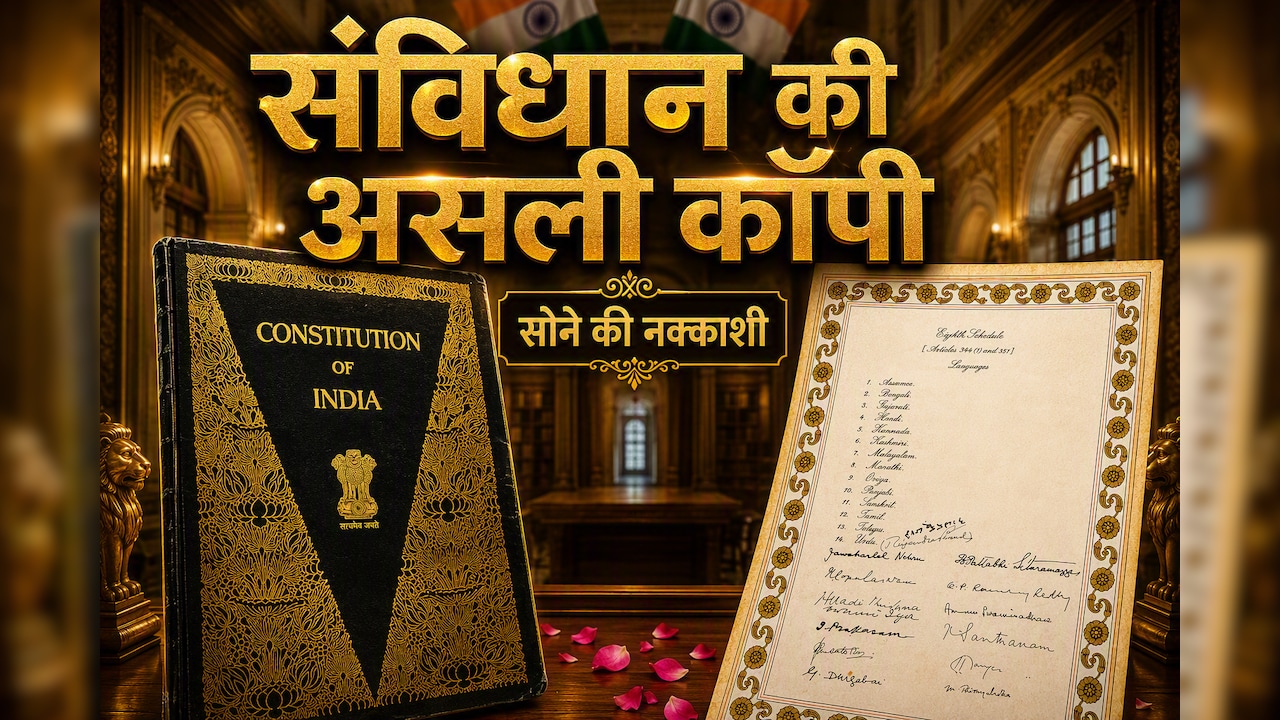 संविधान की
असली कॉपी
सोने की नक्काशी
CONSTITUTION
OF
INDIA
सत्यमेव जयते
Eighth Schedule
[Articles 344 (1) and 351]
Languages
1. Assamese.
2. Bengali.
3. Gujarati.
4. Hindi.
5. Kannada.
6. Kashmiri.
7. Malayalam.
8. Marathi.
9. Oriya.
10. Panjabi.
11. Sanskrit.
12. Tamil.
13. Telugu.
14. Urdu.
(Rajendra Prasad)
Jawaharlal Nehru
B Pattabhi Sitaramayya
O. P. Ramaswamy Reddy
Ammu Swaminadhan
T. Prakasam
K Santhanam
G. Durgabai